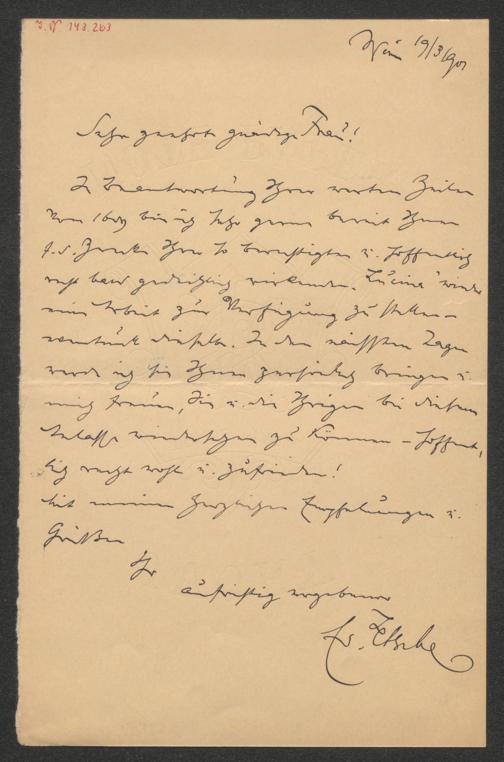 J. N 148.263
Wien 19/3 1901
Sehr geehrte gnädige Frau!
In Beantwortung Ihrer werten Zeilen
vom bin ich sehr gerne bereit Ihnen
f. d. Zwecke Ihrer so berechtigten u. hoffentlich
recht bald gedeihlich wirkenden „Lucina" wieder
eine Arbeit zur Verfügung zu stellen –
eventuell dieselbe. In den nächsten Tagen
werde ich sie Ihnen persönlich bringen u.
mich freuen, Sie u. die Ihrigen bei diesem
Anlasse wiedersehen zu können – hoffent-
lich recht wohl u. zufrieden!
Mit meinen herzlichen Empfehlungen u.
Grüßen
Ihr
aufrichtig ergebener
Ed. Zetsche